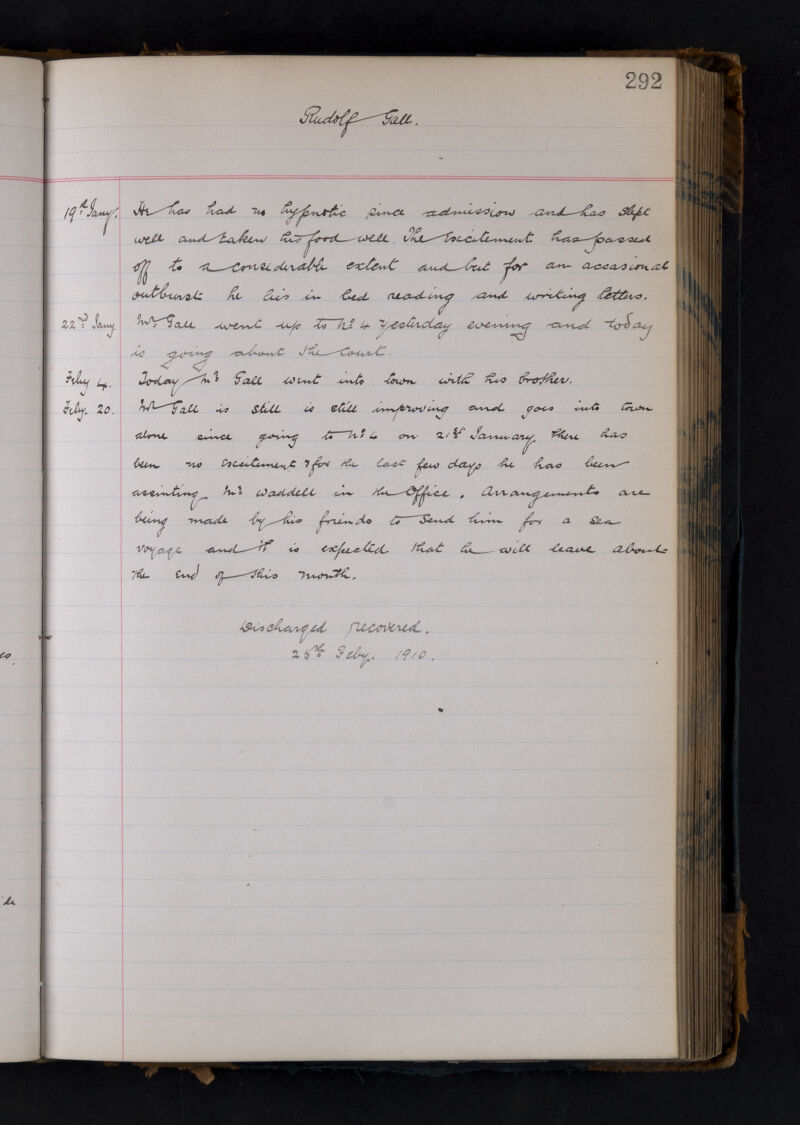 292
Rudolf Gall.
19th Jany. He has had no hypnotic since admission and has slept
well and taken his food well. The excitement has passed
off to a considerable extent and but for an occasional
outburst he lies in bed reading and writing letters.
22nd Jany Mr Gall went up to No 4 yesterday evening and today
is going about the Court.
Feby 4. Today Mr Gall went into town with his brother.
Feby. 20. Mr Gall is still is still improving and goes into town
alone since going to No 4 on 21st January. There has
been no excitement & for the last few days he has been
assisting Mr Waddell in the Office. Arrangements are
being made by his friends to send him for a sea
voyage and it is expected that he will leave about
the end of this month.
Discharged recovered.
25th Feby. 1910.